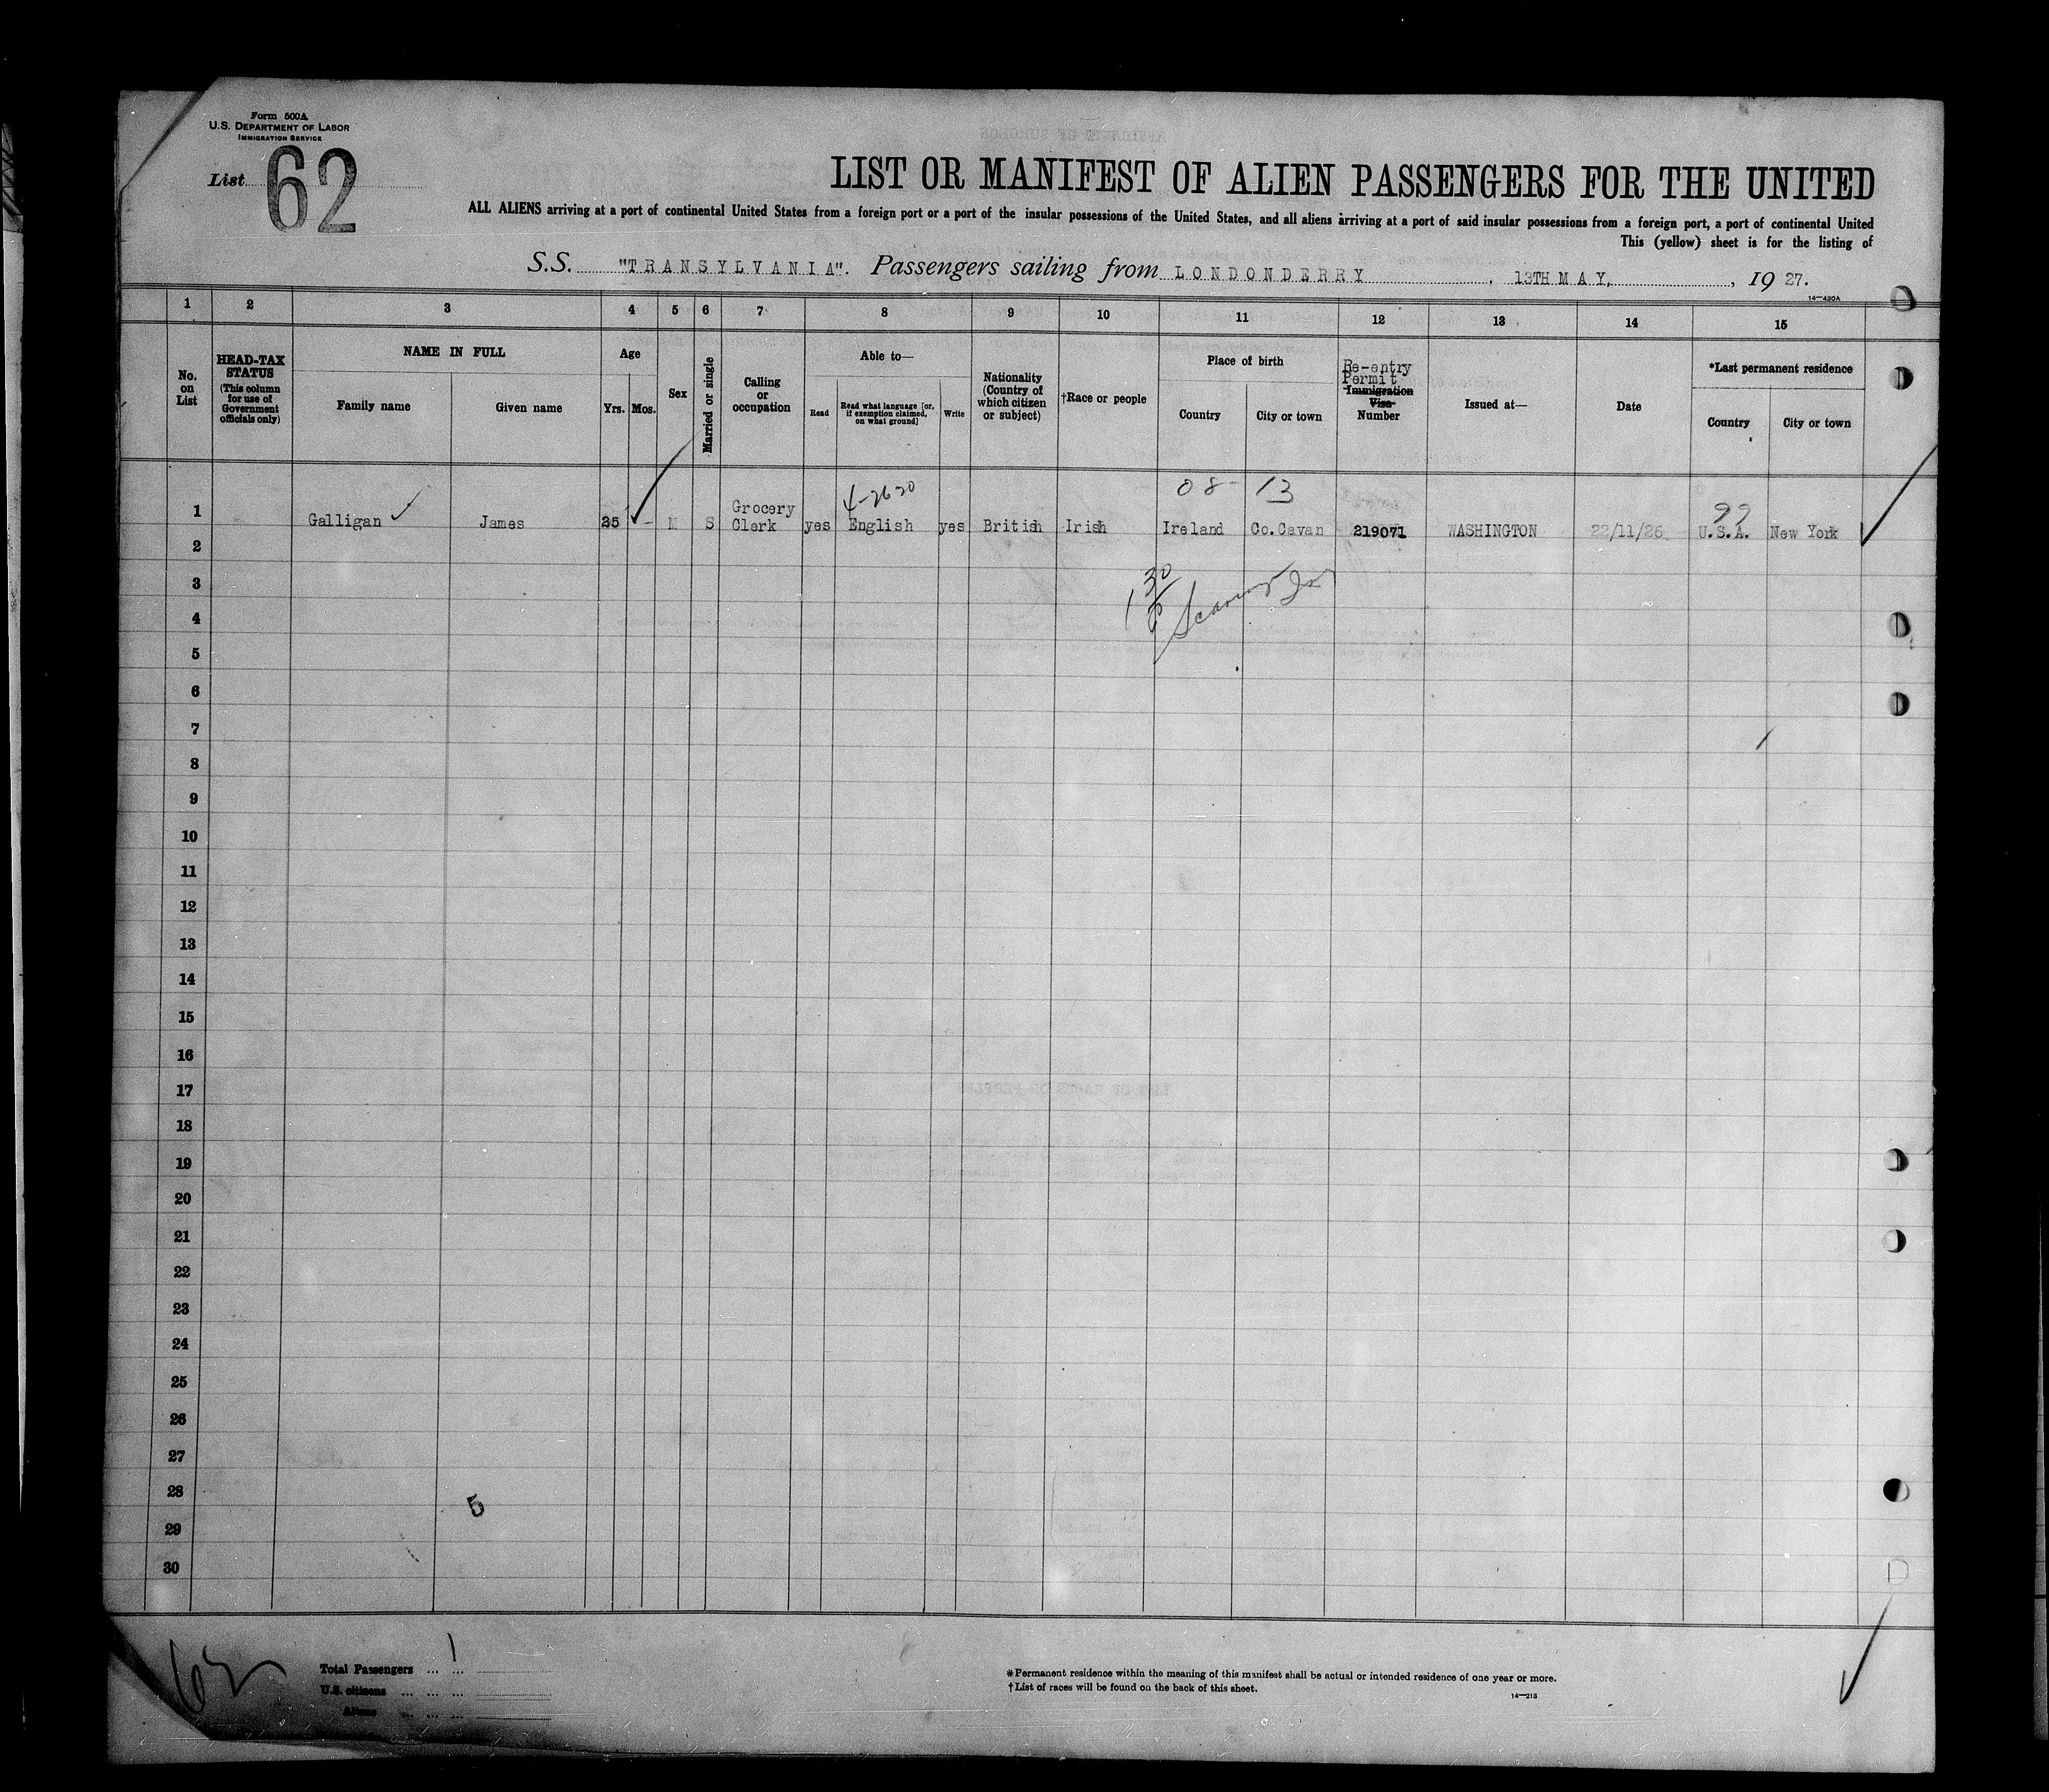 Form 500A
U.S. DEPARTMENT OF LABOR
IMMIGRATION SERVICE
List 62
LIST OR MANIFEST OF ALIEN PASSENGERS FOR THE UNITED
ALL ALIENS arriving at a port of continental United States from a foreign port or a port of the insular possessions of the United States, and all aliens arriving at a port of said insular possessions from a foreign port, a port of continental United
This (yellow) sheet is for the listing of
S.S. "TRANSYLVANIA". Passengers sailing from LONDONDERRY, 13TH MAY, 1927.
14-430A
1 2 3 4 5 6 7 8 9 10 11 12 13 14 15
No. on List
HEAD-TAX STATUS (This column for use of Government officials only)
NAME IN FULL
Family name
Given name
Age
Yrs. Mos.
Sex
Married or single
Calling or occupation
Able to—
Read
Read what language [or, if exemption claimed, on what ground]
Write
Nationality (Country of which citizen or subject)
†Race or people
Place of birth
Country
City or town
Re-entry Permit
Immigration Visa Number
Issued at—
Date
*Last permanent residence
Country
City or town
4-26-20 08 13 99
1 Galligan James 25 - M S Grocery Clerk yes English yes British Irish Ireland Co.Cavan 219071 WASHINGTON 22/11/26 U.S.A. New York
2
3
30
4
5
6
7
8
9
10
11
12
13
14
15
16
17
18
19
20
21
22
23
24
25
26
27
28
5
29
30
62
Total Passengers ... ... 1
U.S. citizens ... ... ...
Aliens ... ... ...
*Permanent residence within the meaning of this manifest shall be actual or intended residence of one year or more.
†List of races will be found on the back of this sheet.
14-213